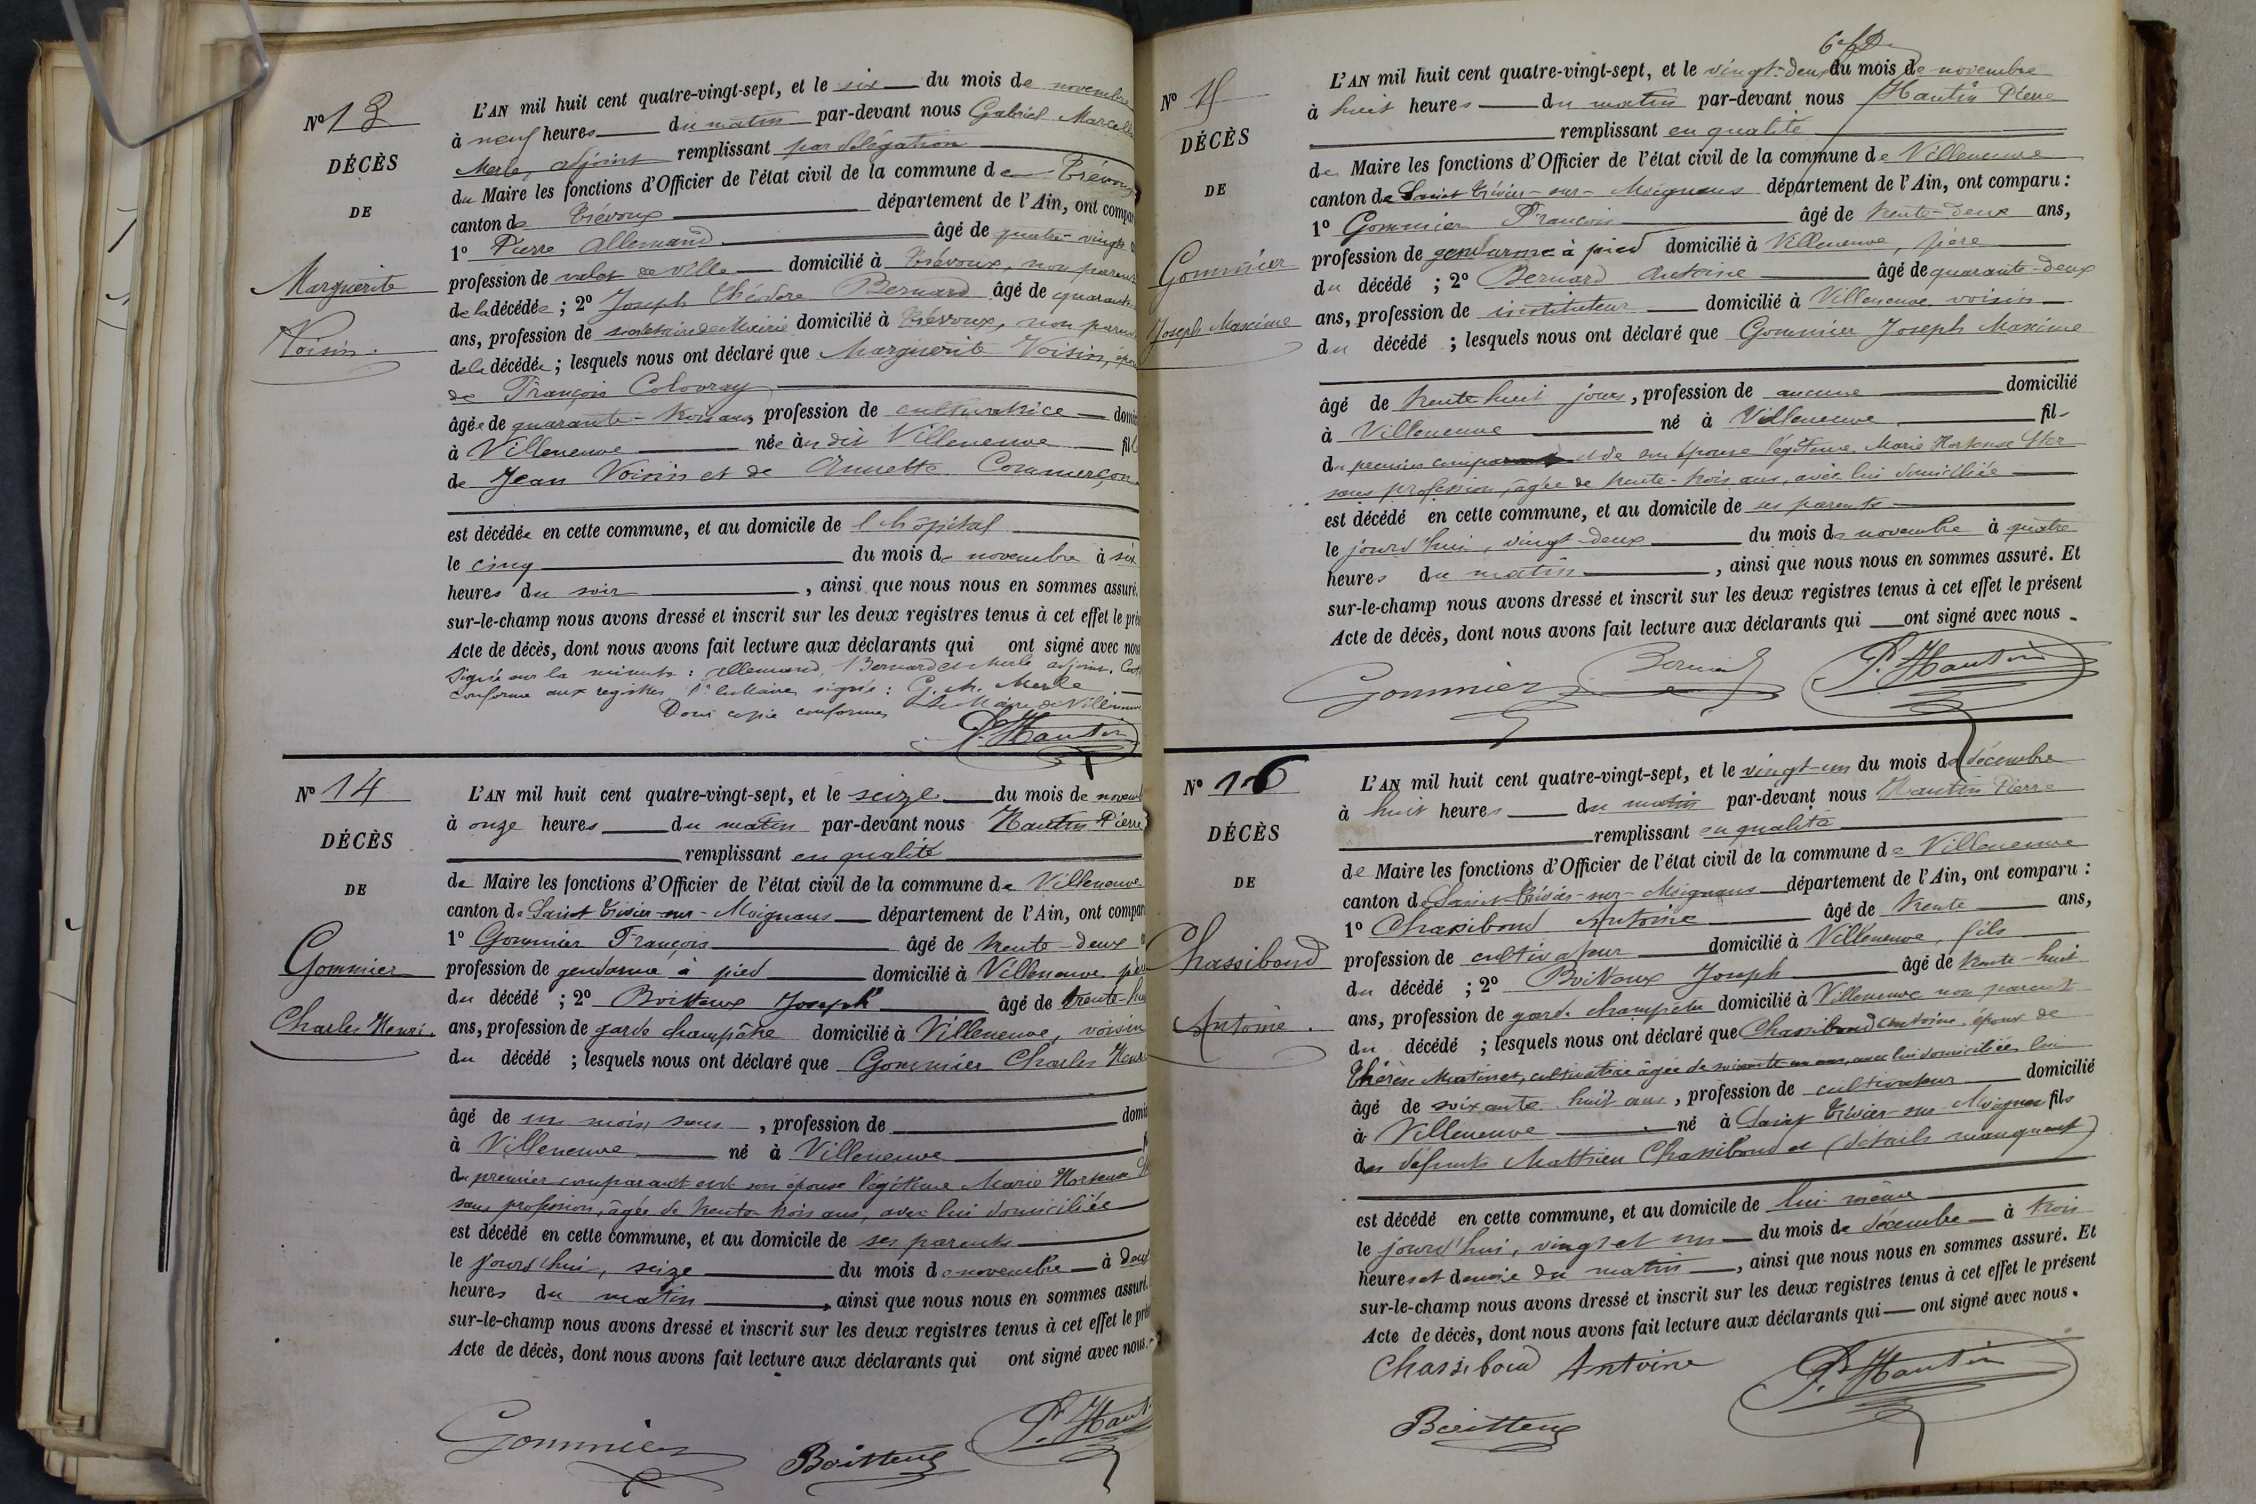 N° 13
DÉCÈS
DE
Marguerite
Voisin.
L'AN mil huit cent quatre-vingt-sept, et le six du mois de novembre
à neuf heures du matin par-devant nous Gabriel Marcellin
Merle, adjoint remplissant par délégation
du Maire les fonctions d'Officier de l'état civil de la commune de Trévoux
canton de Trévoux département de l'Ain, ont compar
1° Pierre Allemand âgé de quatre-vingts
profession de valet de ville domicilié à Trévoux, non parent
de la décédée ; 2° Joseph Théodore Bernard âgé de quarante
ans, profession de secrétaire de Mairie domicilié à Trévoux, non parent
de la décédée ; lesquels nous ont déclaré que Marguerite Voisin, épouse
de François Colovray
âgée de quarante-trois ans, profession de cultivatrice domi
à Villeneuve née à dit Villeneuve fil
de Jean Voisin et de Annette Commerçon
est décédée en cette commune, et au domicile de l'hôpital
le cinq du mois de novembre à six
heures du soir , ainsi que nous nous en sommes assuré.
sur-le-champ nous avons dressé et inscrit sur les deux registres tenus à cet effet le prés
Acte de décès, dont nous avons fait lecture aux déclarants qui ont signé avec nous
Signé sur la minute : Allemand, Bernard et Merle adjoint.
conforme aux registres Pr le Maire, signé : G. M. Merle
Pour copie conforme Le Maire de Villeneuve
P. Hautin
N° 14
DÉCÈS
DE
Gommier
Charles Henri.
L'AN mil huit cent quatre-vingt-sept, et le seize du mois de novem
à onze heures du matin par-devant nous Hautin Pierre
remplissant en qualité
de Maire les fonctions d'Officier de l'état civil de la commune de Villeneuve
canton de Saint Trivier-sur-Moignans département de l'Ain, ont compar
1° Gommier François âgé de trente-deux
profession de gendarme à pied domicilié à Villeneuve, père
du décédé ; 2° Boitteux Joseph âgé de trente-hu
ans, profession de garde champêtre domicilié à Villeneuve, voisin
du décédé ; lesquels nous ont déclaré que Gommier Charles Henri
âgé de un mois , profession de domi
à Villeneuve né à Villeneuve
du premier comparant et de son épouse légitime Marie Hortense
sans profession, âgée de trente-trois ans, avec lui domiciliée
est décédé en cette commune, et au domicile de ses parents
le jourd'hui, seize du mois de novembre à
heures du matin , ainsi que nous nous en sommes assuré.
sur-le-champ nous avons dressé et inscrit sur les deux registres tenus à cet effet le prés
Acte de décès, dont nous avons fait lecture aux déclarants qui ont signé avec nous.
Gommier Boitteux P. Hautin
N° 15
DÉCÈS
DE
Gommier
Joseph Maxime
L'AN mil huit cent quatre-vingt-sept, et le vingt-deux du mois de novembre
à huit heures du matin par-devant nous Hautin Pierre
remplissant en qualité
de Maire les fonctions d'Officier de l'état civil de la commune de Villeneuve
canton de Saint Trivier-sur-Moignans département de l'Ain, ont comparu :
1° Gommier François âgé de trente-deux ans,
profession de gendarme à pied domicilié à Villeneuve, père
du décédé ; 2° Bernard Antoine âgé de quarante-deux
ans, profession de instituteur domicilié à Villeneuve voisin
du décédé ; lesquels nous ont déclaré que Gommier Joseph Maxime
âgé de trente huit jours, profession de aucune domicilié
à Villeneuve né à Villeneuve fil-
du premier comparant et de son épouse légitime Marie Hortense
sans profession, âgée de trente-trois ans, avec lui domiciliée
est décédé en cette commune, et au domicile de ses parents
le jourd'hui, vingt-deux du mois de novembre à quatre
heures du matin , ainsi que nous nous en sommes assuré. Et
sur-le-champ nous avons dressé et inscrit sur les deux registres tenus à cet effet le présent
Acte de décès, dont nous avons fait lecture aux déclarants qui ont signé avec nous.
Gommier Bernard P. Hautin
N° 16
DÉCÈS
DE
Chassiboud
Antoine.
L'AN mil huit cent quatre-vingt-sept, et le vingt-un du mois de décembre
à huit heures du matin par-devant nous Hautin Pierre
remplissant en qualité
de Maire les fonctions d'Officier de l'état civil de la commune de Villeneuve
canton de Saint Trivier-sur-Moignans département de l'Ain, ont comparu :
1° Chassiboud Antoine âgé de trente ans,
profession de cultivateur domicilié à Villeneuve, fils
du décédé ; 2° Boitteux Joseph âgé de trente-huit
ans, profession de garde champêtre domicilié à Villeneuve non parent
du décédé ; lesquels nous ont déclaré que Chassiboud Antoine, époux de
Thérèse Matinet, cultivatrice âgée de soixante-un ans, avec lui domiciliée, lui
âgé de soixante-huit ans, profession de cultivateur domicilié
à Villeneuve né à Saint Trivier-sur-Moignans fils
des défunts Matthieu Chassiboud et (détails manquent)
est décédé en cette commune, et au domicile de lui-même
le jourd'hui, vingt et un du mois de décembre à trois
heures et demie du matin , ainsi que nous nous en sommes assuré. Et
sur-le-champ nous avons dressé et inscrit sur les deux registres tenus à cet effet le présent
Acte de décès, dont nous avons fait lecture aux déclarants qui ont signé avec nous.
Chassiboud Antoine P. Hautin
Boitteux